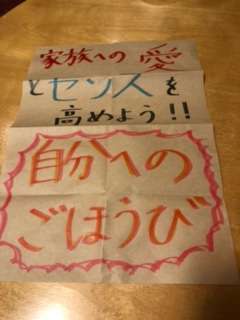 家族への愛
とセンスを
高めよう!!
自分への
ごほうび